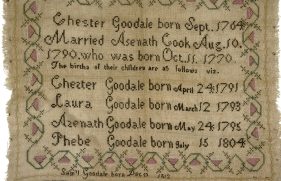 Chester Goodale born Sept. 1764
Married Asenath Cook Aug. 10.
1790. who was born Oct. 11. 1770.
The births of their children are as follows viz.
Chester Goodale born April 24. 1791
Laura Goodale born March 12 1793
Azenath Goodale born May 24 1795
Phebe Goodale born July 15 1804
Goodale born